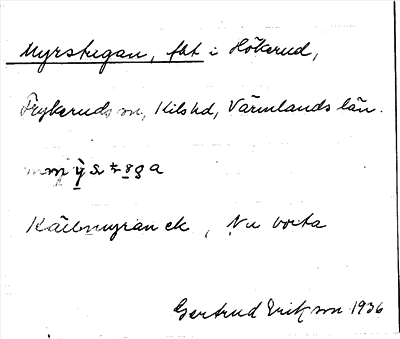 Myrstugan, fht i Hökerud,
Frykeruds sn, Kils hd, Värmlands län.
Källmyran ek, Nu borta
Gertrud Erikson 1936